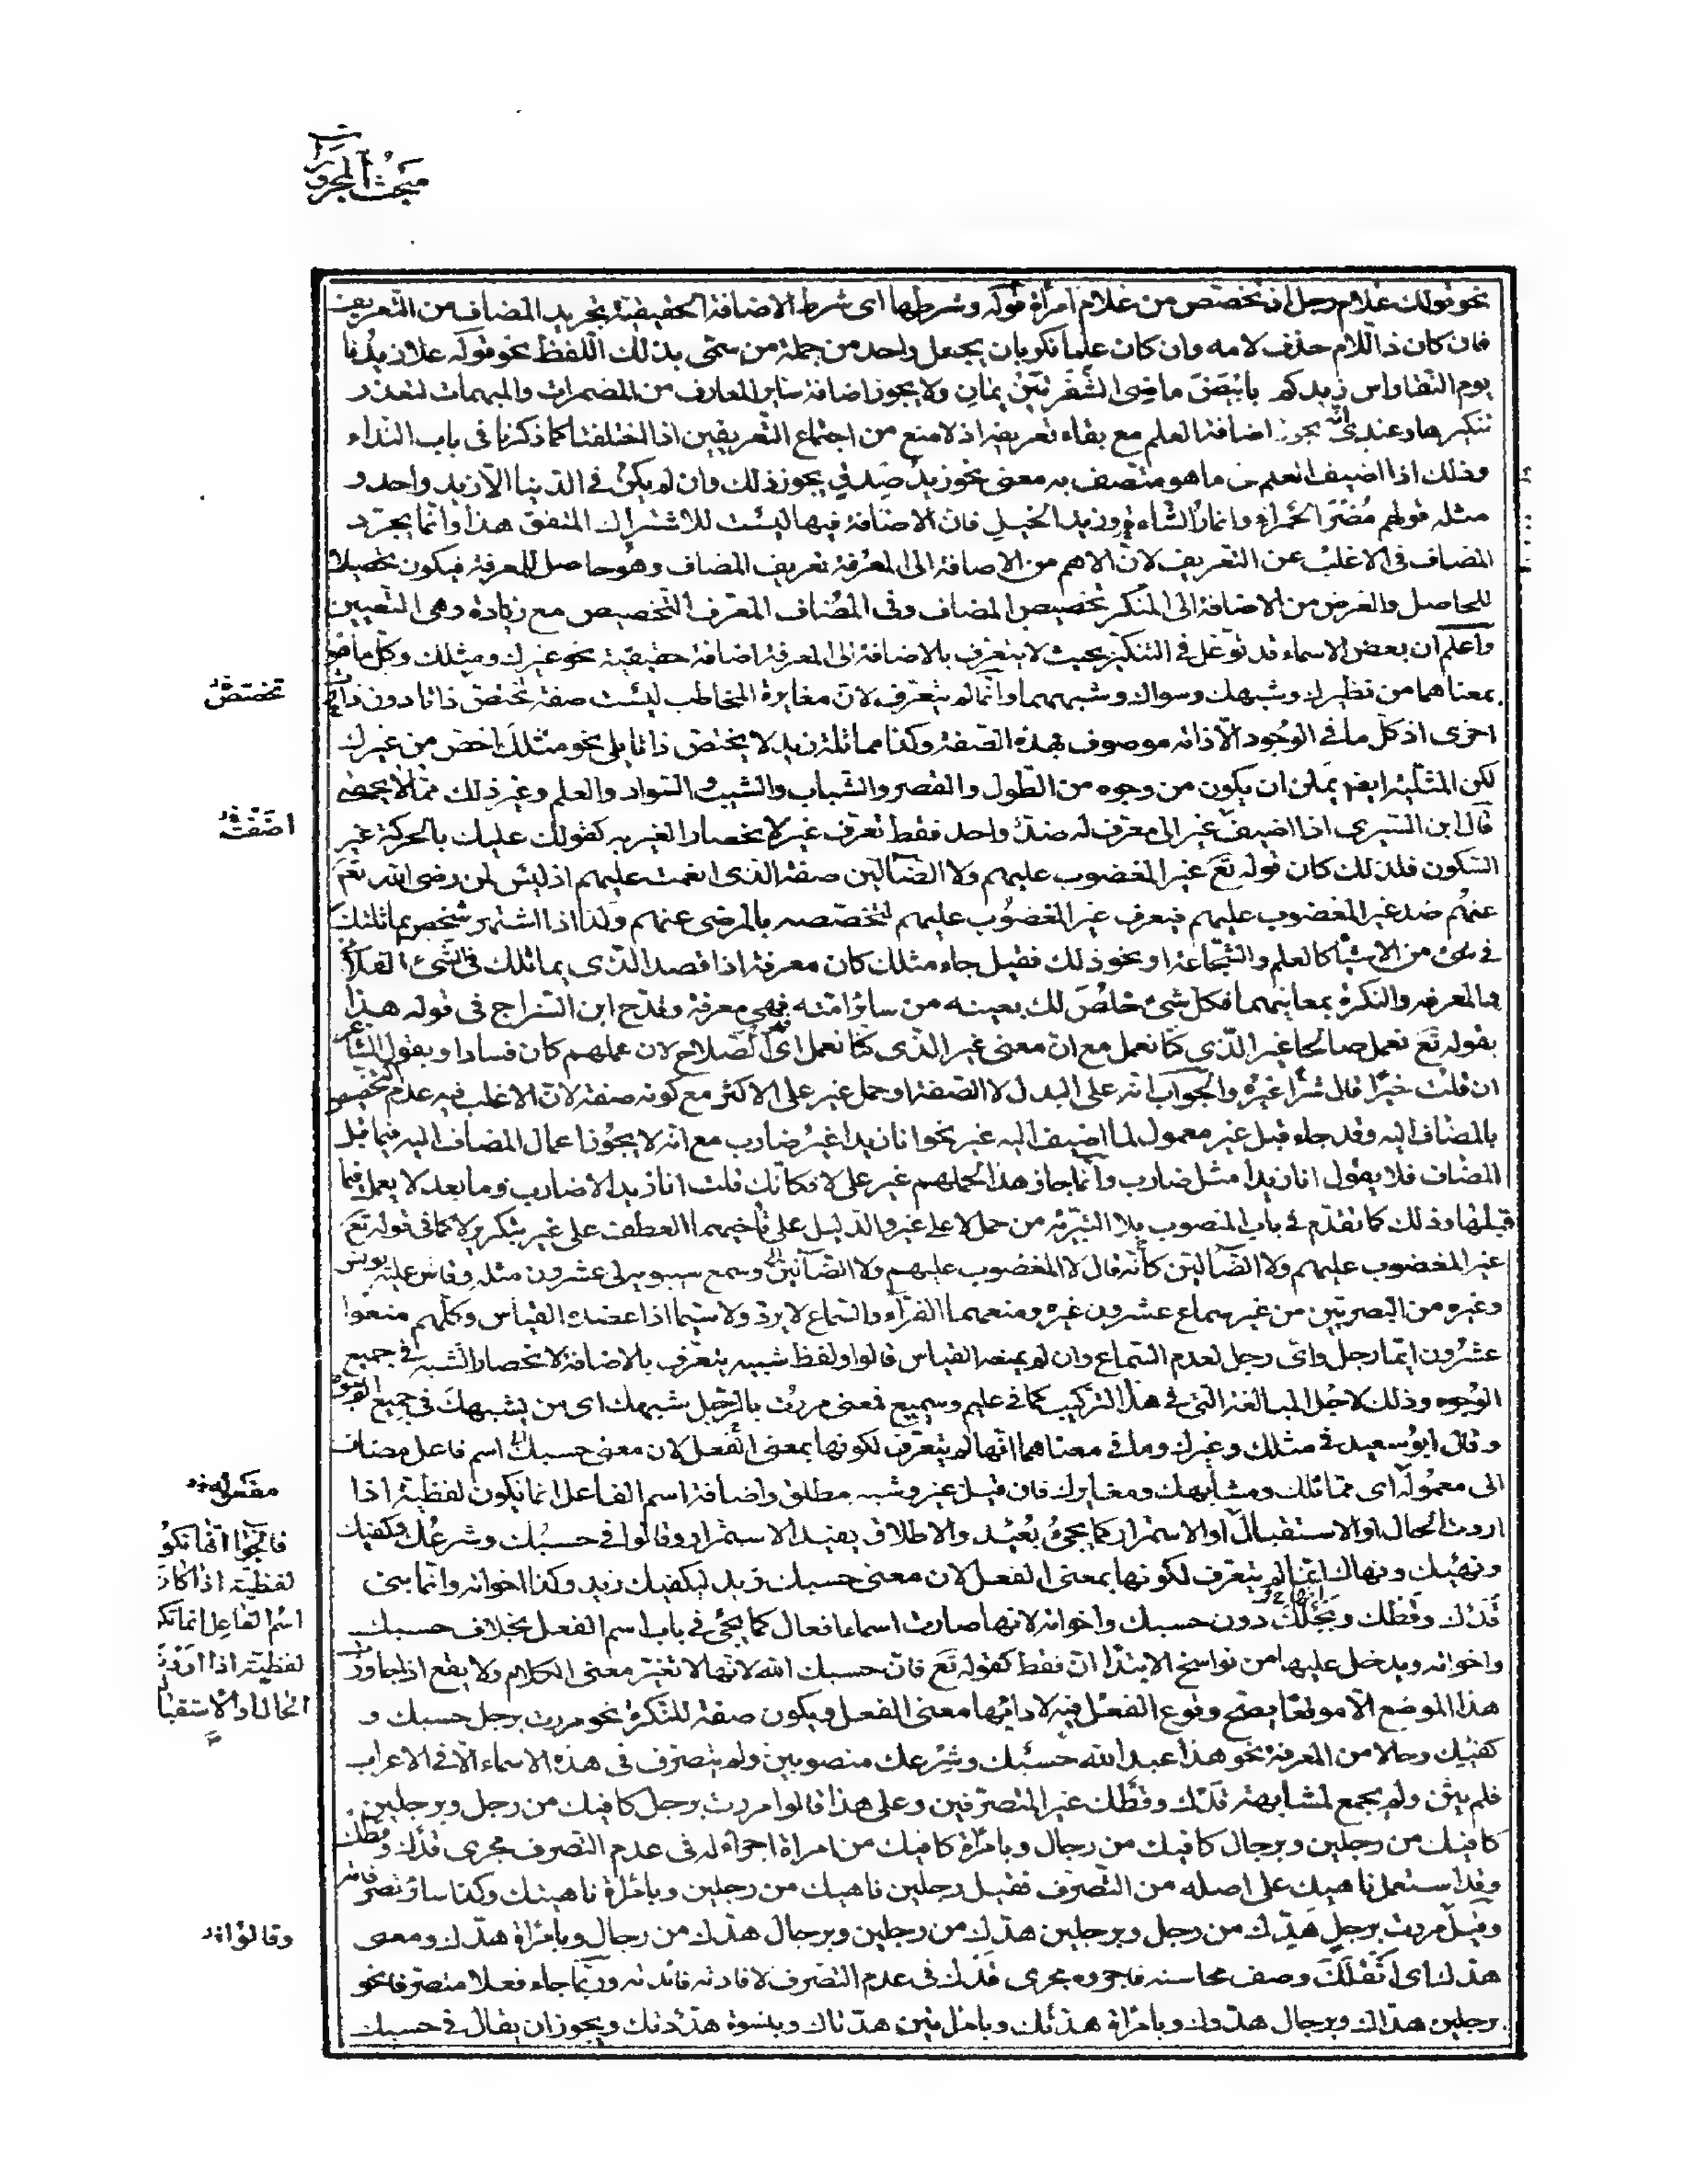 مبحث المجرورات
نحو قولك غلام رجل اذ تخصص من غلام امرأة قوله وشرطها اى شرط الاضافة الحقيقية تجريد المضاف من التعريف
فان كان ذا اللام حذف لامه وان كان علما نكر بان يجعل واحد من جملة من سمى بذلك اللفظ نحو قوله علا زيدنا
يوم النقا راس زيدكم بابيض ماضى الشفرتين يمان ولا يجوز اضافة سائر المعارف من المضمرات والمبهمات لتعذر
تنكيرها وعندى انه يجوز اضافة العلم مع بقاء تعريفه اذ لا منع من اجتماع التعريفين اذا اختلفا كما ذكرنا فى باب النداء
وذلك اذا اضيف العلم الى ما هو متصف به معنى نحو زيد صدق يجوز ذلك وان لم يكن فى الدنيا الا زيد واحد و
مثله قولهم مضر الحمراء وانمار الشاء وزيد الخيل فان الاضافة فيها ليست للاشتراك المتفق هذا وانما يجرد
المضاف فى الاغلب عن التعريف لان الاهم من الاضافة الى المعرفة تعريف المضاف وهو حاصل للمعرفة فيكون تحصيلا
للحاصل والغرض من الاضافة الى المنكر تخصيص المضاف وفى المضاف المعرف التخصيص مع زيادة وهى التعيين
واعلم ان بعض الاسماء قد توغل فى التنكير بحيث لا يتعرف بالاضافة الى المعرفة اضافة حقيقية نحو غيرك ومثلك وكل ما هو
بمعناهما من نظيرك وشبهك وسواك وشبههما وانما لم يتعرف لان مغايرة المخاطب ليست صفة تخص ذاتا دون ذات
تخصص
اخرى اذ كل ما فى الوجود الا ذاته موصوف بهذه الصفة وكذا مماثلة زيد لا يختص ذاتا بلى نحو مثلك اخص من غيرك
لكن المثلية ايضا يمكن ان يكون من وجوه من الطول والقصر والشباب والشيب والسواد والعلم وغير ذلك مما لا يحصى
اضفته
قال ابن السرى اذا اضيف غير الى معرف له ضد واحد فقط تعرف غير لانحصار الغيرية كقولك عليك بالحركة غير
السكون فلذلك كان قوله تع غير المغضوب عليهم ولا الضالين صفة الذى انعمت عليهم اذ ليس لمن رضى الله تع
عنهم ضد غير المغضوب عليهم فيعرف غير المغضوب عليهم لتخصصه بالمرضى عنهم ولذا اذا اشتهر شخص بمماثلتك
فى شئ من الاشياء كالعلم والشجاعة او نحو ذلك فقيل جاء مثلك كان معرفة اذا قصد الذى يماثلك فى الشئ الفلانى
فالمعرفة والنكرة بمعانيهما فكل شئ خلص لك بعينه من سائر امته فهى معرفة وقدح ابن السراج فى قوله هذا
بقوله تع نعمل صالحا غير الذى كنا نعمل مع ان معنى غير الذى كنا نعمل اى الصلاح لان عملهم كان فسادا وبقول الشاعر
ان قلت خيرا قال شرا غيره والجواب انه على البدل لا الصفة او حمل غير على الاكثر مع كونه صفة لان الاغلب فيه عدم التخصيص
بالمضاف اليه وقد جاء قبل غير معمول لما اضيف اليه غير نحو انا زيدا غير ضارب مع انه لا يجوز اعمال المضاف اليه فيما قبل
المضاف فلا يقول انا زيدا مثل ضارب وانما جاز هذا لحملهم غير على لا فكانك قلت انا زيدا لا ضارب وما بعد لا يعمل فيما
قبلها وذلك كما تقدم فى باب المنصوب بلا التبرئة من حمل لا على غير والدليل على تاخيهما العطف على غير بتكرير لا كما فى قوله تع
غير المغضوب عليهم ولا الضالين كأنه قال لا المغضوب عليهم ولا الضالين وسمع سيبويه لى عشرون مثله وقاس عليه يونس
وغيره من البصريين من غير سماع عشرون غيره ومنعهما الفراء والسماع لا يرد ولا سيما اذا عضده القياس وكلهم منعوا
عشرون ايما رجل واى رجل لعدم السماع وان لم يمنعه القياس قالوا ولفظ شبيه يتعرف بالاضافة لانحصار الشبه فى جميع
الوجوه وذلك لاجل المبالغة التى فى هذا التركيب كما فى عليم وسميع فمعنى مررت بالرجل شبيهك اى من يشبهك فى جميع الوجوه
وقال ابو سعيد فى مثلك وغيرك وما فى معناهما انها لم يتعرف لكونها بمعنى الفعل لان معنى حسبك اسم فاعل مضاف
الى معموله اى مماثلك ومشابهك ومغايرك فان قيل غير وشبه مطلق واضافة اسم الفاعل انما تكون لفظية اذا
مفعوله
اردت الحال او الاستقبال او الاستمرار كما يجئ بعيد والاطلاق يفيد الاستمرار وقالوا فى حسبك وشرعك وكفيك
فالجواب انها تكو
لفظية اذا كان
اسم الفاعل انما تكو
لفظية اذا اردت
الحال او الاستقبال
ونهيك ونهاك انما لم يتعرف لكونها بمعنى الفعل لان معنى حسبك زيد ليكفيك زيد وكذا اخواته وانما بنى
قدك وقطك وبجلك دون حسبك واخواته لانها صارت اسماء افعال كما يجئ فى باب اسم الفعل بخلاف حسبك
واخواته ويدخل عليها من نواسخ الابتداء ان فقط كقوله تع فان حسبك الله لانها لا تغير معنى الكلام ولا يقع اذا جاوزت
هذا الموضع الا موقعا يصح وقوع الفعل فيه لادائها معنى الفعل فيكون صفة للنكرة نحو مررت برجل حسبك و
كفيك وحالا من المعرفة نحو هذا عبد الله حسبك وشرعك منصوبين ولم يتصرف فى هذه الاسماء الا فى الاعراب
فلم يثن ولم يجمع لمشابهته قدك وقطك غير المتصرفين وعلى هذا قالوا مررت برجل كافيك من رجل وبرجلين
كافيك من رجلين وبرجال كافيك من رجال وبامرأة كافيك من امرأة اجراء له فى عدم التصرف مجرى قدك وقطك
وقد استعمل ناهيك على اصله من التصرف فقيل رجلين ناهيك من رجلين وبامرأة ناهيتك وكذا سائر تصرفاته
وقيل مررت برجل هدك من رجل وبرجلين هدك من رجلين وبرجال هدك من رجال وبامرأة هدك ومعنى
وقالوا
هدك اى اثقلك وصف محاسنه فاجروه مجرى قدك فى عدم التصرف لافادته فائدته وربما جاء فعلا متصرفا نحو
برجلين هداك وبرجال هدوك وبامرأة هدتك وبامرأتين هدتاك وبنسوة هددنك ويجوز ان يقال فى حسبك